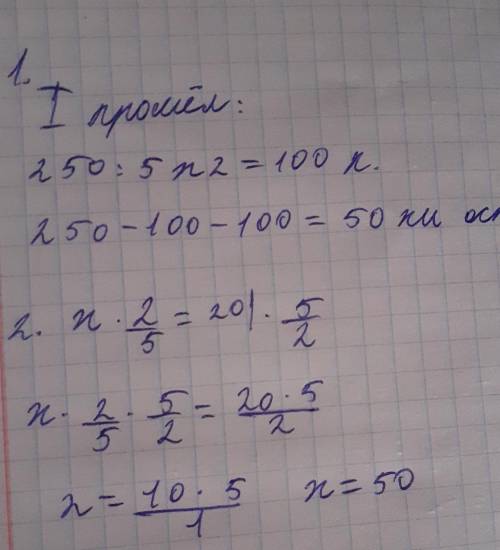 1.
I прошёл:
250 : 5 х 2 = 100 к.
250 - 100 - 100 = 50 км ост
2. x · 2/5 = 20 | · 5/2
x · 2/5 · 5/2 = 20 · 5/2
x = 10 · 5/1 x = 50